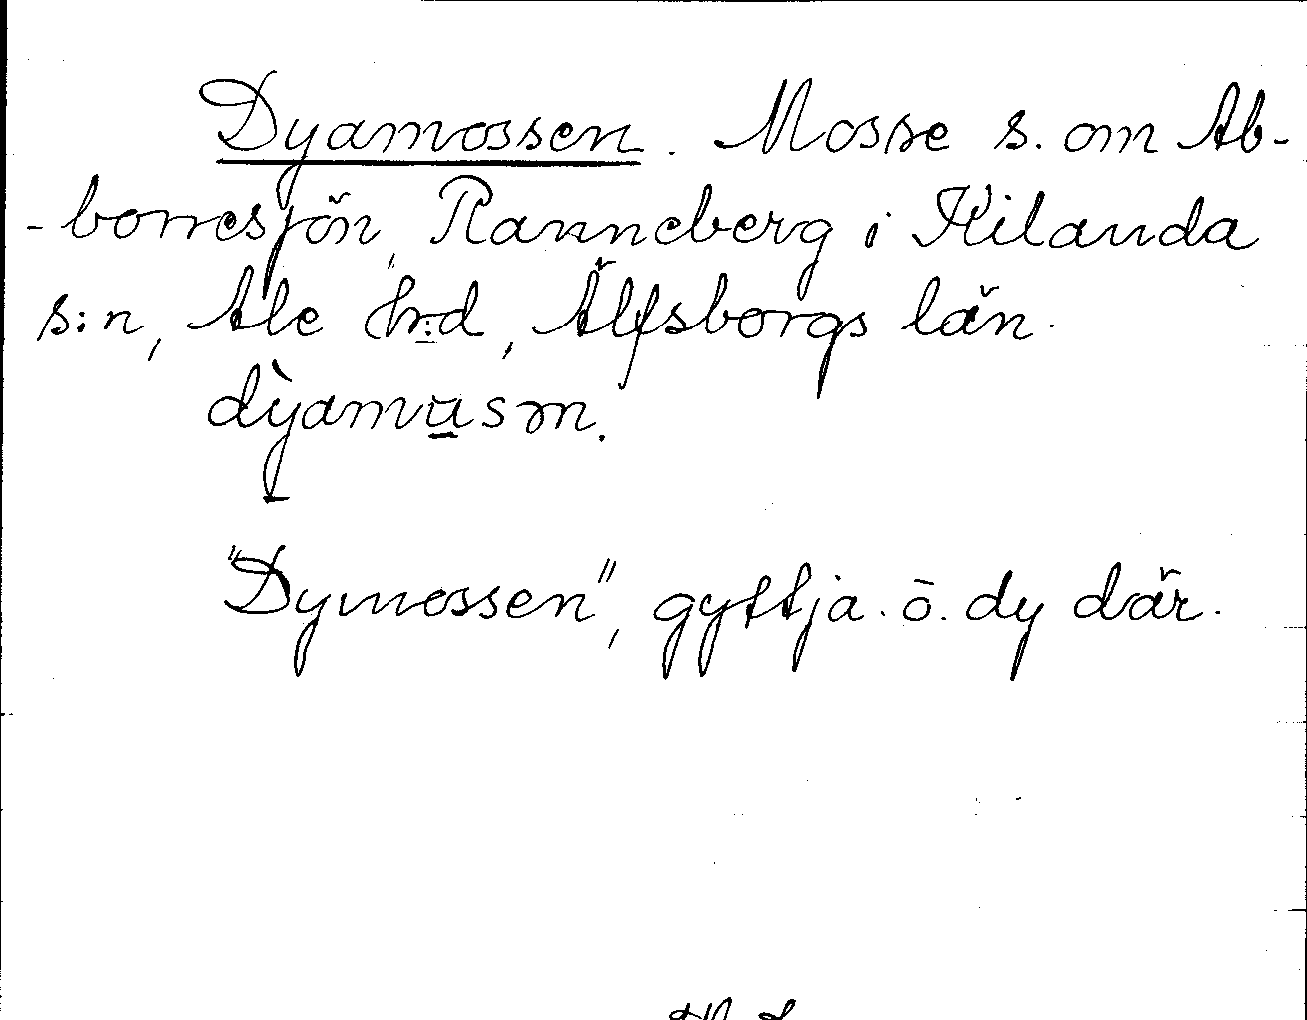 Dyamossen. Mosse s. om Ab-
-borresjön, Ranneberg i Kilanda
s:n, Ale hrd, Älfsborgs län.
dỳamu̲sən.
"Dymossen", gyttja. ō. dy där.